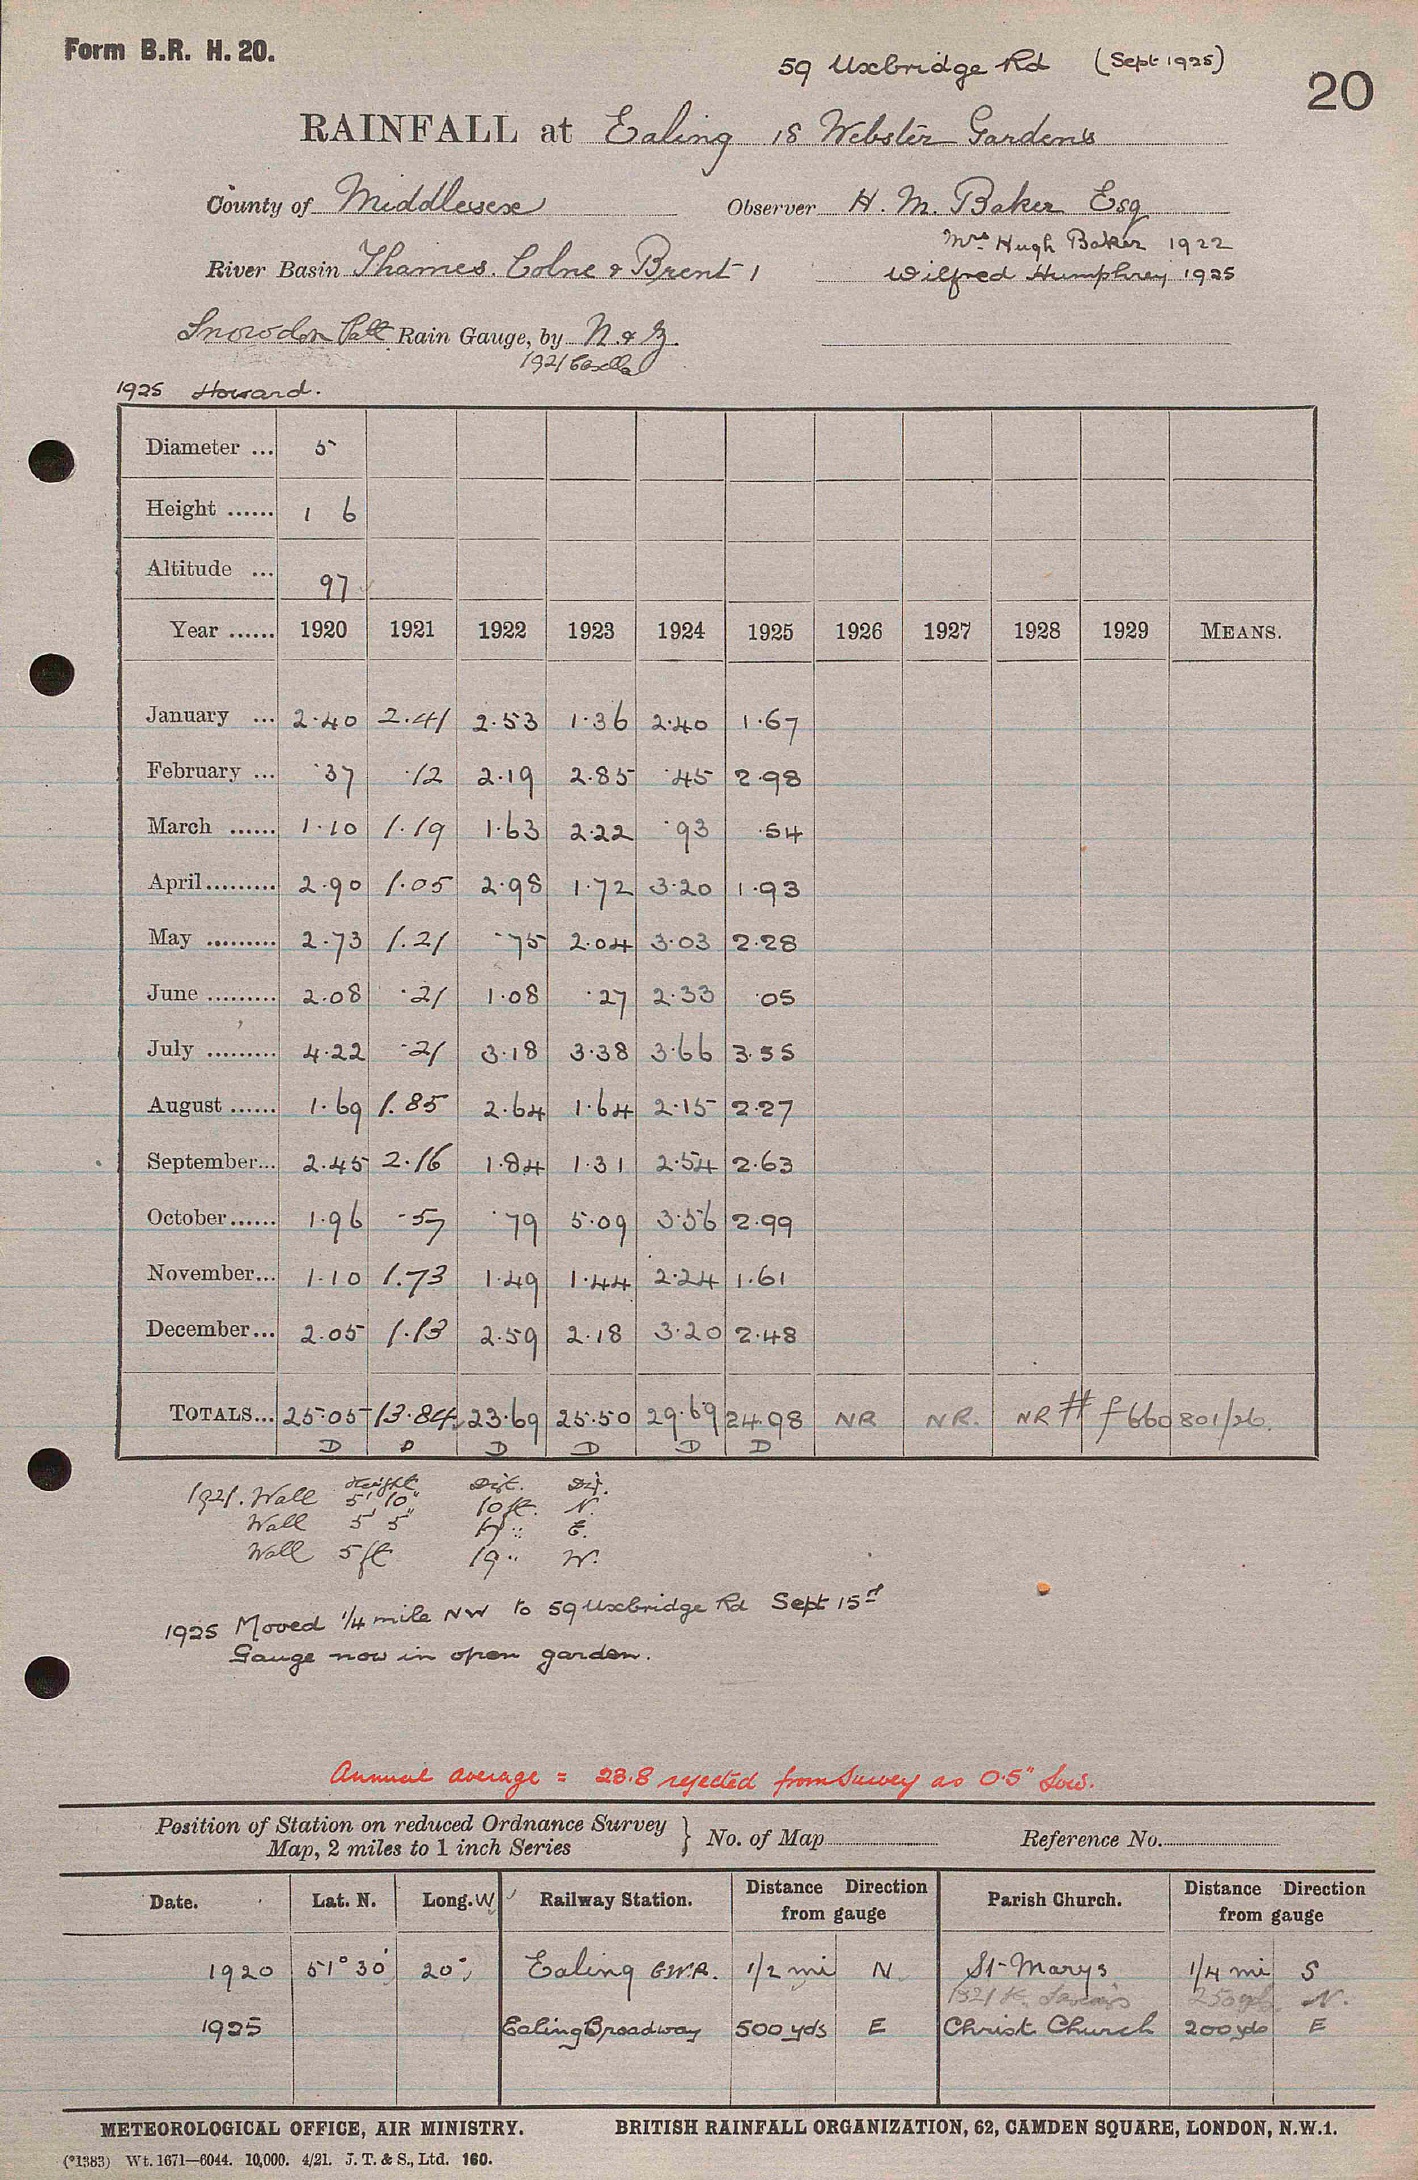 Form B.R. H. 20.
59 Uxbridge Rd (Sept 1925)
20
RAINFALL at Ealing 18 Webster Gardens
County of Middlesex Observer H. M. Baker Esq
Mrs Hugh Baker 1922
River Basin Thames. Colne & Brent 1 Wilfred Humphrey 1925
Snowdon Patt Rain Gauge, by N. & Z.
1921 Casella
1925 Howard.
Diameter ... 5
Height ...... 1 6
Altitude ... 97
Year ...... 1920 1921 1922 1923 1924 1925 1926 1927 1928 1929 MEANS.
January ... 2.40 2.41 2.53 1.36 2.40 1.67
February ... .37 .12 2.19 2.85 .45 2.98
March ...... 1.10 1.19 1.63 2.22 .93 .54
April ......... 2.90 1.05 2.98 1.72 3.20 1.93
May ......... 2.73 1.21 .75 2.04 3.03 2.28
June ......... 2.08 .21 1.08 .27 2.33 .05
July ......... 4.22 .21 3.18 3.38 3.66 3.55
August ...... 1.69 1.85 2.64 1.64 2.15 2.27
September... 2.45 2.16 1.84 1.31 2.54 2.63
October ...... 1.96 .57 .79 5.09 3.56 2.99
November... 1.10 1.73 1.49 1.44 2.24 1.61
December... 2.05 1.13 2.59 2.18 3.20 2.48
TOTALS... 25.05 13.84 23.69 25.50 29.69 24.98 NR NR. NR # f 660 801/26.
D D D D D D
Height Dist. Dir.
1921. Wall 5' 10" 10 ft. N.
Wall 5' 5" " E.
Wall 5 ft 19 " W.
1925 Moved 1/4 mile NW to 59 Uxbridge Rd Sept 15th
Gauge now in open garden.
Annual average = 23.8 rejected from Survey as 0.5" low.
Position of Station on reduced Ordnance Survey Map, 2 miles to 1 inch Series } No. of Map Reference No.
Date. Lat. N. Long. W Railway Station. Distance Direction from gauge Parish Church. Distance Direction from gauge
1920 51° 30' 20" Ealing G.W.R. 1/2 mi N St Marys 1/4 mi S
1921 250 yds. N.
1925 Ealing Broadway 500 yds E Christ Church 200 yds E
METEOROLOGICAL OFFICE, AIR MINISTRY. BRITISH RAINFALL ORGANIZATION, 62, CAMDEN SQUARE, LONDON, N.W.1.
(*1383) Wt. 1671—6044. 10,000. 4/21. J. T. & S., Ltd. 160.